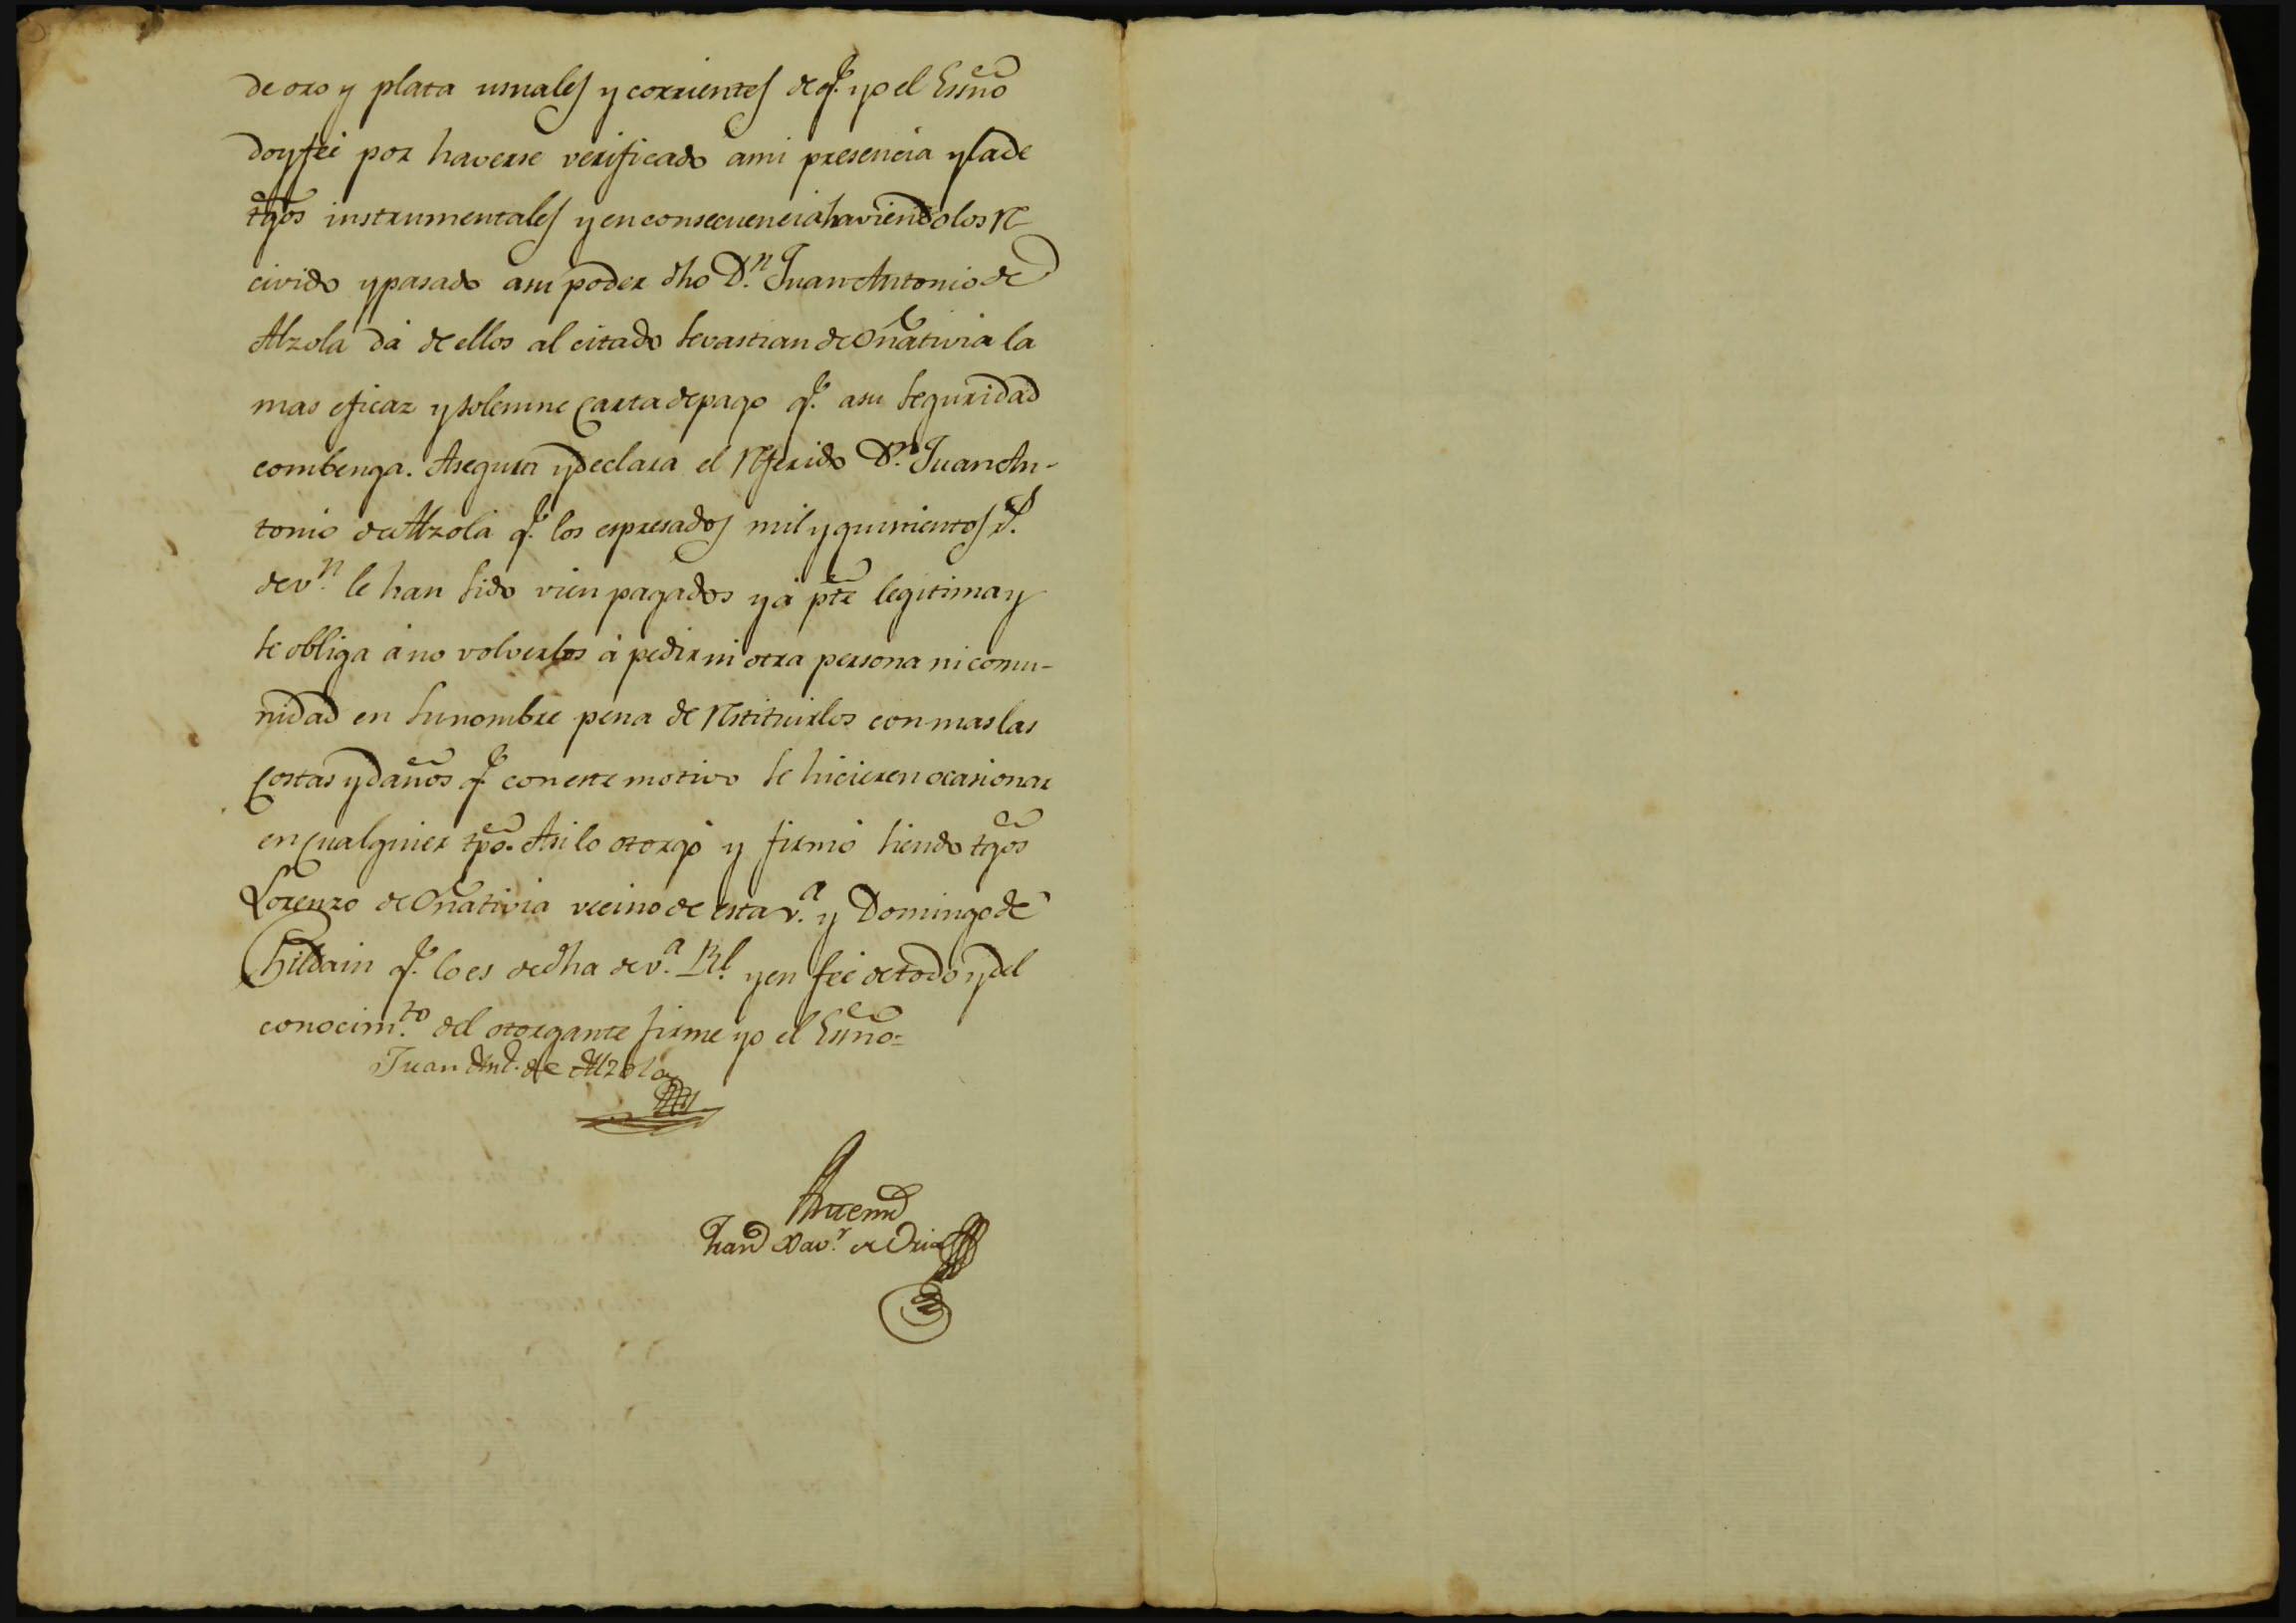 de oro y plata usuales y corrientes de q.e yo el Essno
doy fée por haverse verificado ami presencia y la de
tgos instrumentales y en consecuencia haviendolos re
civido y pasado asu poder dho D.n Juan Antonio de
Alzola dá de ellos al citado Sevastian de Oñativia la
mas eficaz y solemne Carta de pago q.e asu Seguridad
combenga. Asegura y declara el referido D.n Juan An-
tonio de Alzola q.e los espresados mil y quinientos r.s
de v.n le han sido vien pagados y á pte legitima y
se obliga á no volverlos á pedir ni otra persona ni comu-
nidad en su nombre pena de restituirlos con mas las
Costas y daños q.e con este motivo se hicieren ocasionar
en Cualquier tpo. Asi lo otorgó y firmó siendo tgos
Lorenzo de Oñativia vecino de esta v.a y Domingo de
Childain q.e lo es de dha de v.a Rl. y en fée de todo y del
conocim.to del otorgante firme yo el Essno=
Juan Ant. de Alzola
Antemi
Fran Xav.r de Oria